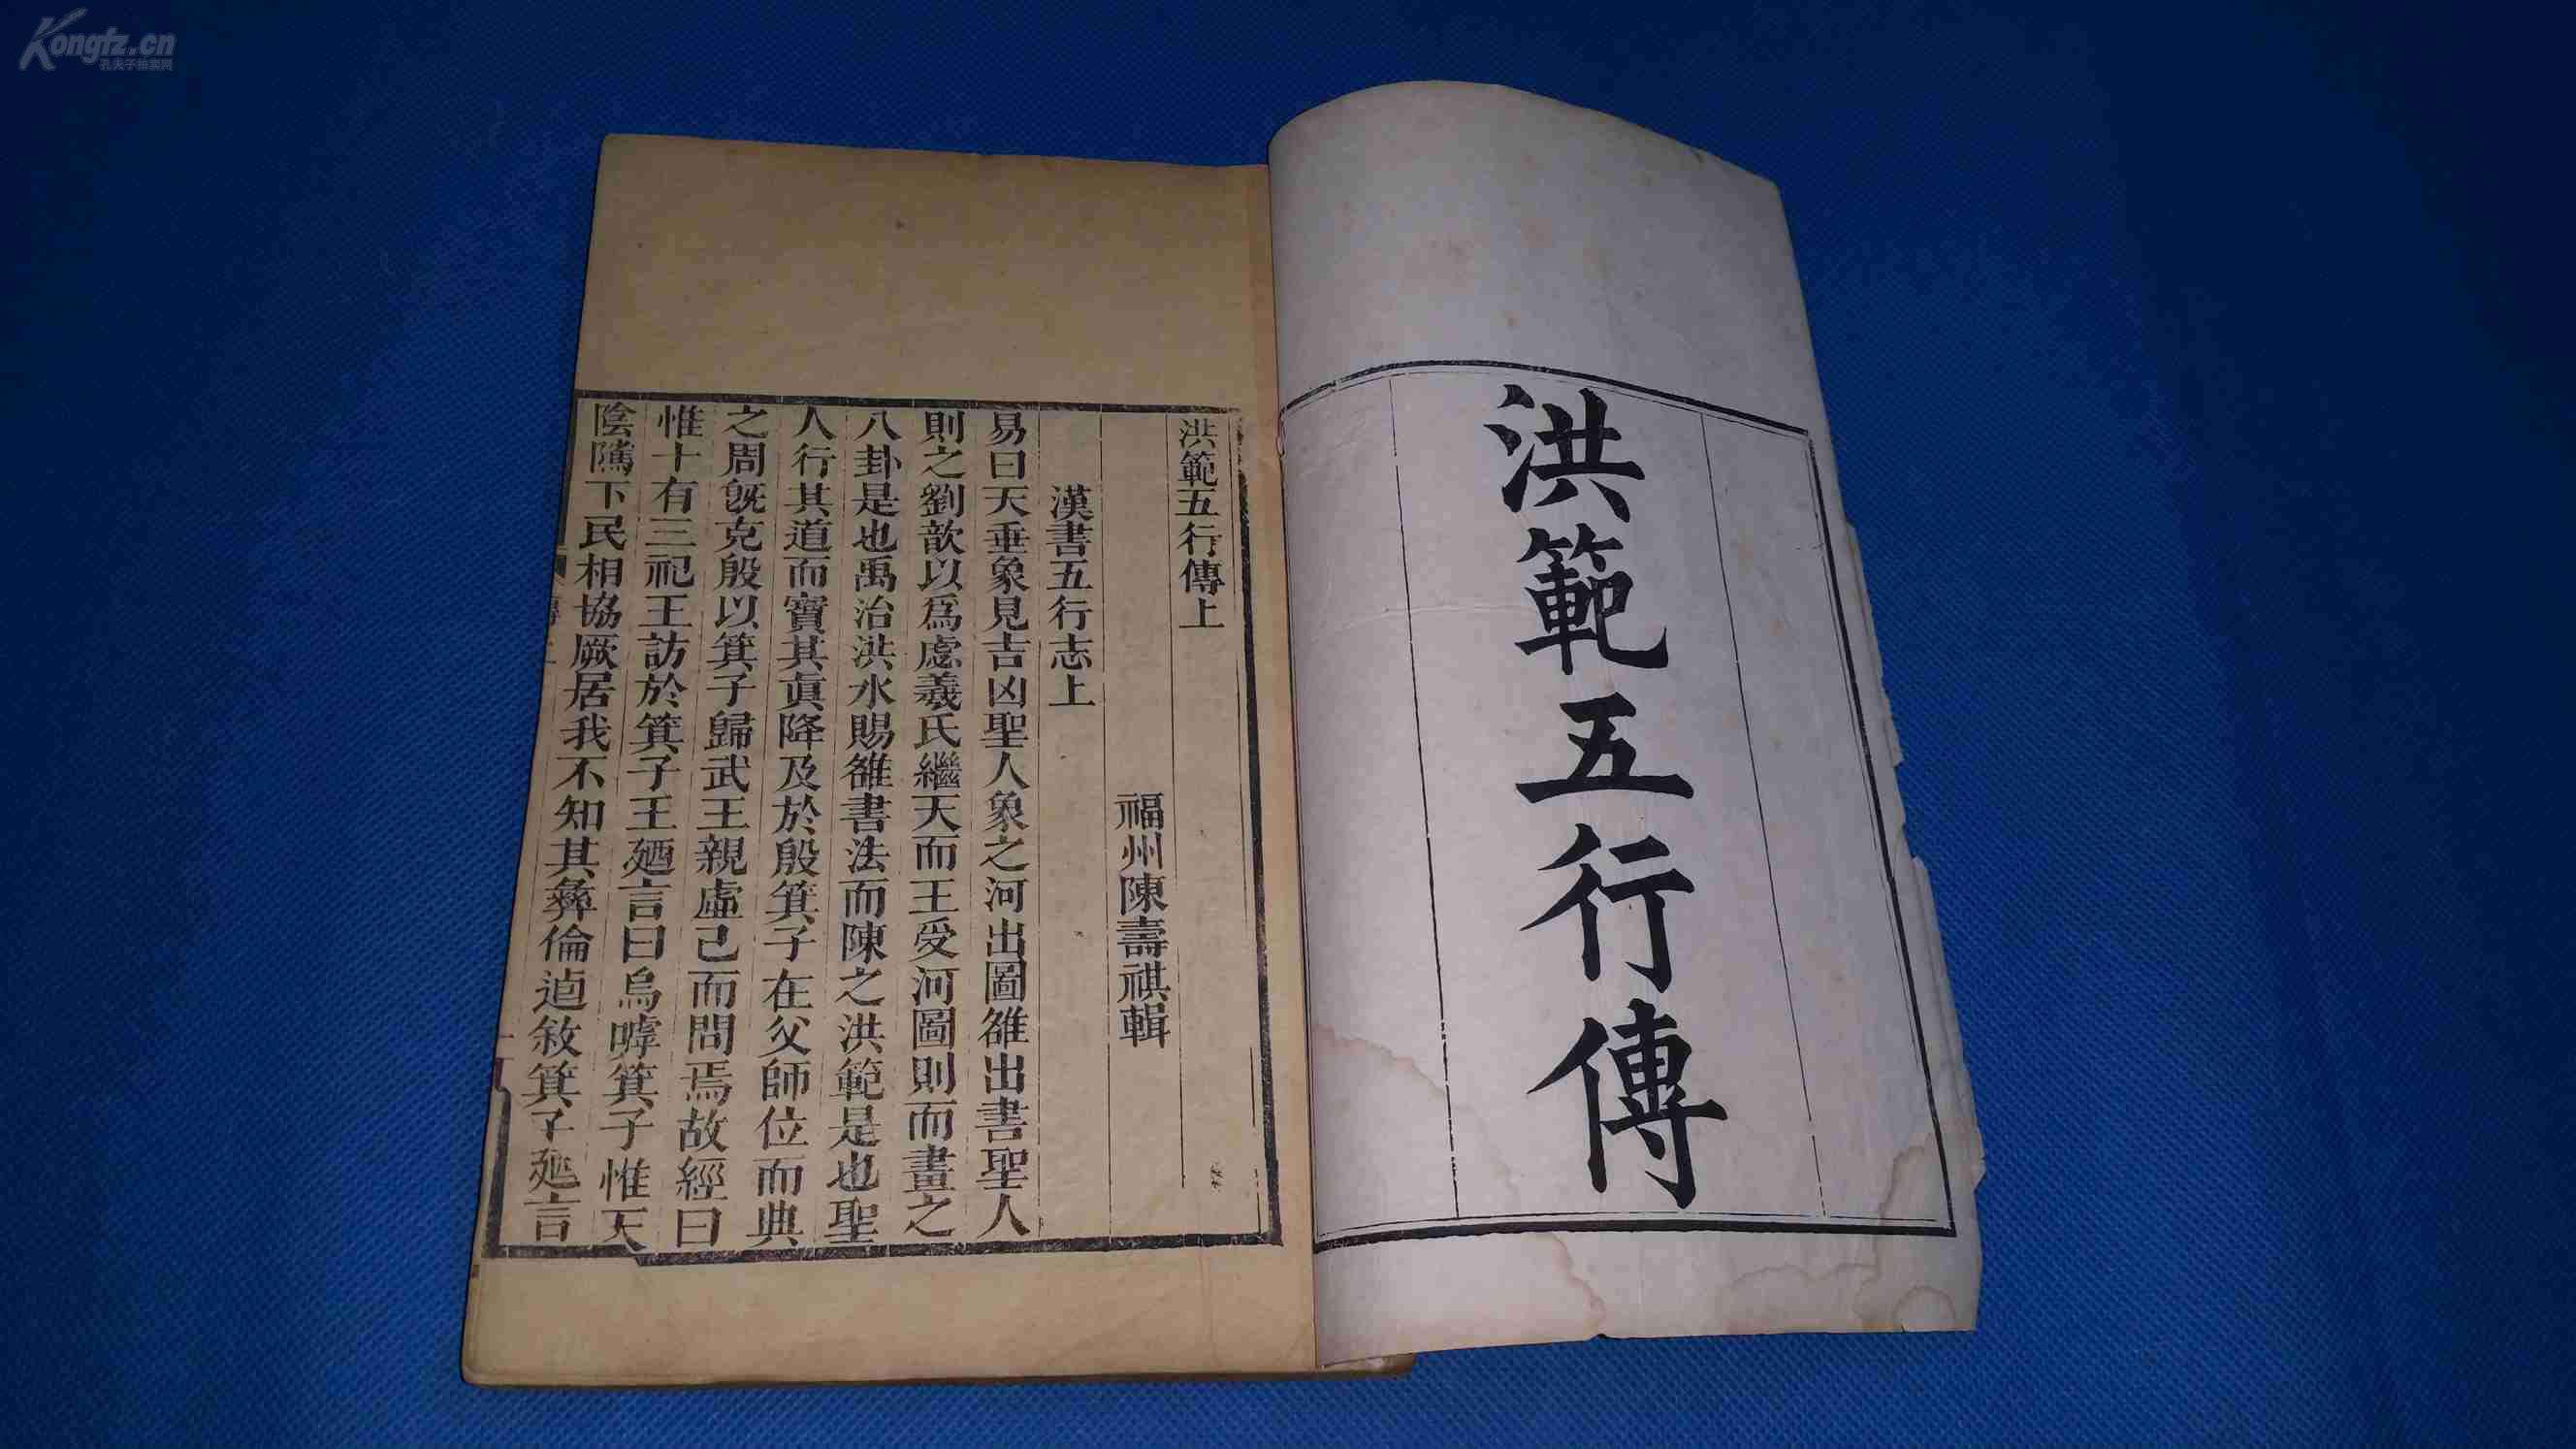 Kongfz.cn
孔夫子拍卖网
洪範五行傳
洪範五行傳上
福州陳壽祺輯
漢書五行志上
易曰天垂象見吉凶聖人象之河出圖雒出書聖人
則之劉歆以爲虙羲氏繼天而王受河圖則而畫之
八卦是也禹治洪水賜雒書法而陳之洪範是也聖
人行其道而寶其眞降及於殷箕子在父師位而典
之周旣克殷以箕子歸武王親虛己而問焉故經曰
惟十有三祀王訪於箕子王乃言曰烏嘑箕子惟天
陰隲下民相協厥居我不知其彝倫逌敘箕子乃言